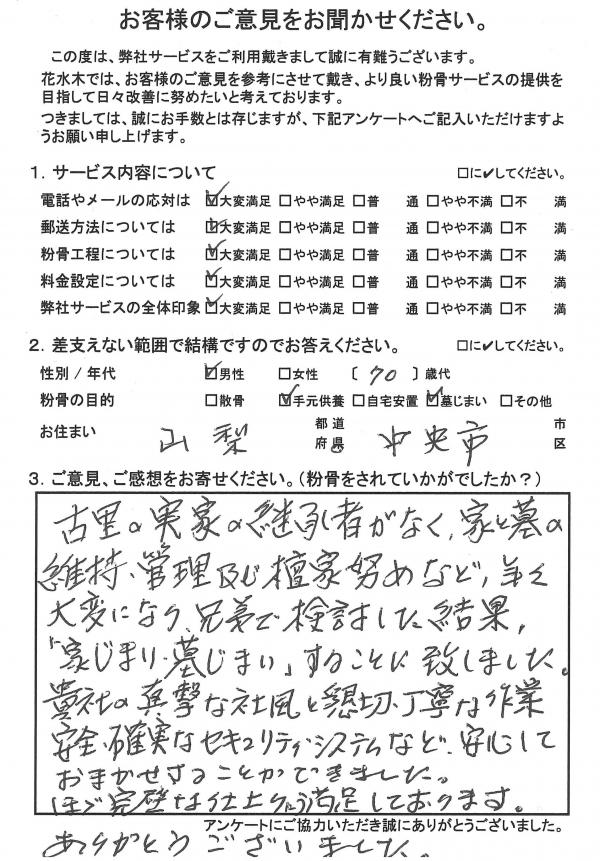 お客様のご意見をお聞かせください。
この度は、弊社サービスをご利用戴きまして誠に有難うございます。
花水木では、お客様のご意見を参考にさせて戴き、より良い粉骨サービスの提供を
目指して日々改善に努めたいと考えております。
つきましては、誠にお手数とは存じますが、下記アンケートへご記入いただけますよ
うお願い申し上げます。
1．サービス内容について □に✔してください。
電話やメールの応対は ☑大変満足 □やや満足 □普 通 □やや不満 □不 満
郵送方法については ☑大変満足 □やや満足 □普 通 □やや不満 □不 満
粉骨工程については ☑大変満足 □やや満足 □普 通 □やや不満 □不 満
料金設定については ☑大変満足 □やや満足 □普 通 □やや不満 □不 満
弊社サービスの全体印象 ☑大変満足 □やや満足 □普 通 □やや不満 □不 満
2．差支えない範囲で結構ですのでお答えください。 □に✔してください。
性別 / 年代 ☑男性 □女性 〔 70 〕歳代
粉骨の目的 □散骨 ☑手元供養 □自宅安置 ☑墓じまい □その他
お住まい 山梨 都道府県 中央市 市区
3．ご意見、ご感想をお寄せください。（粉骨をされていかがでしたか？）
古里の実家の継承者がなく、家と墓の
維持・管理及び檀家努めなど、年々
大変になり、兄弟で検討した結果，
「家じまい・墓じまい」することに致しました。
貴社の真摯な社風と懇切・丁寧な作業
安全・確実なセキュリティ・システムなど、安心して
おまかせすることができました。
ほぼ完璧な仕上り満足しております。
アンケートにご協力いただき誠にありがとうございました。
ありがとうございました。